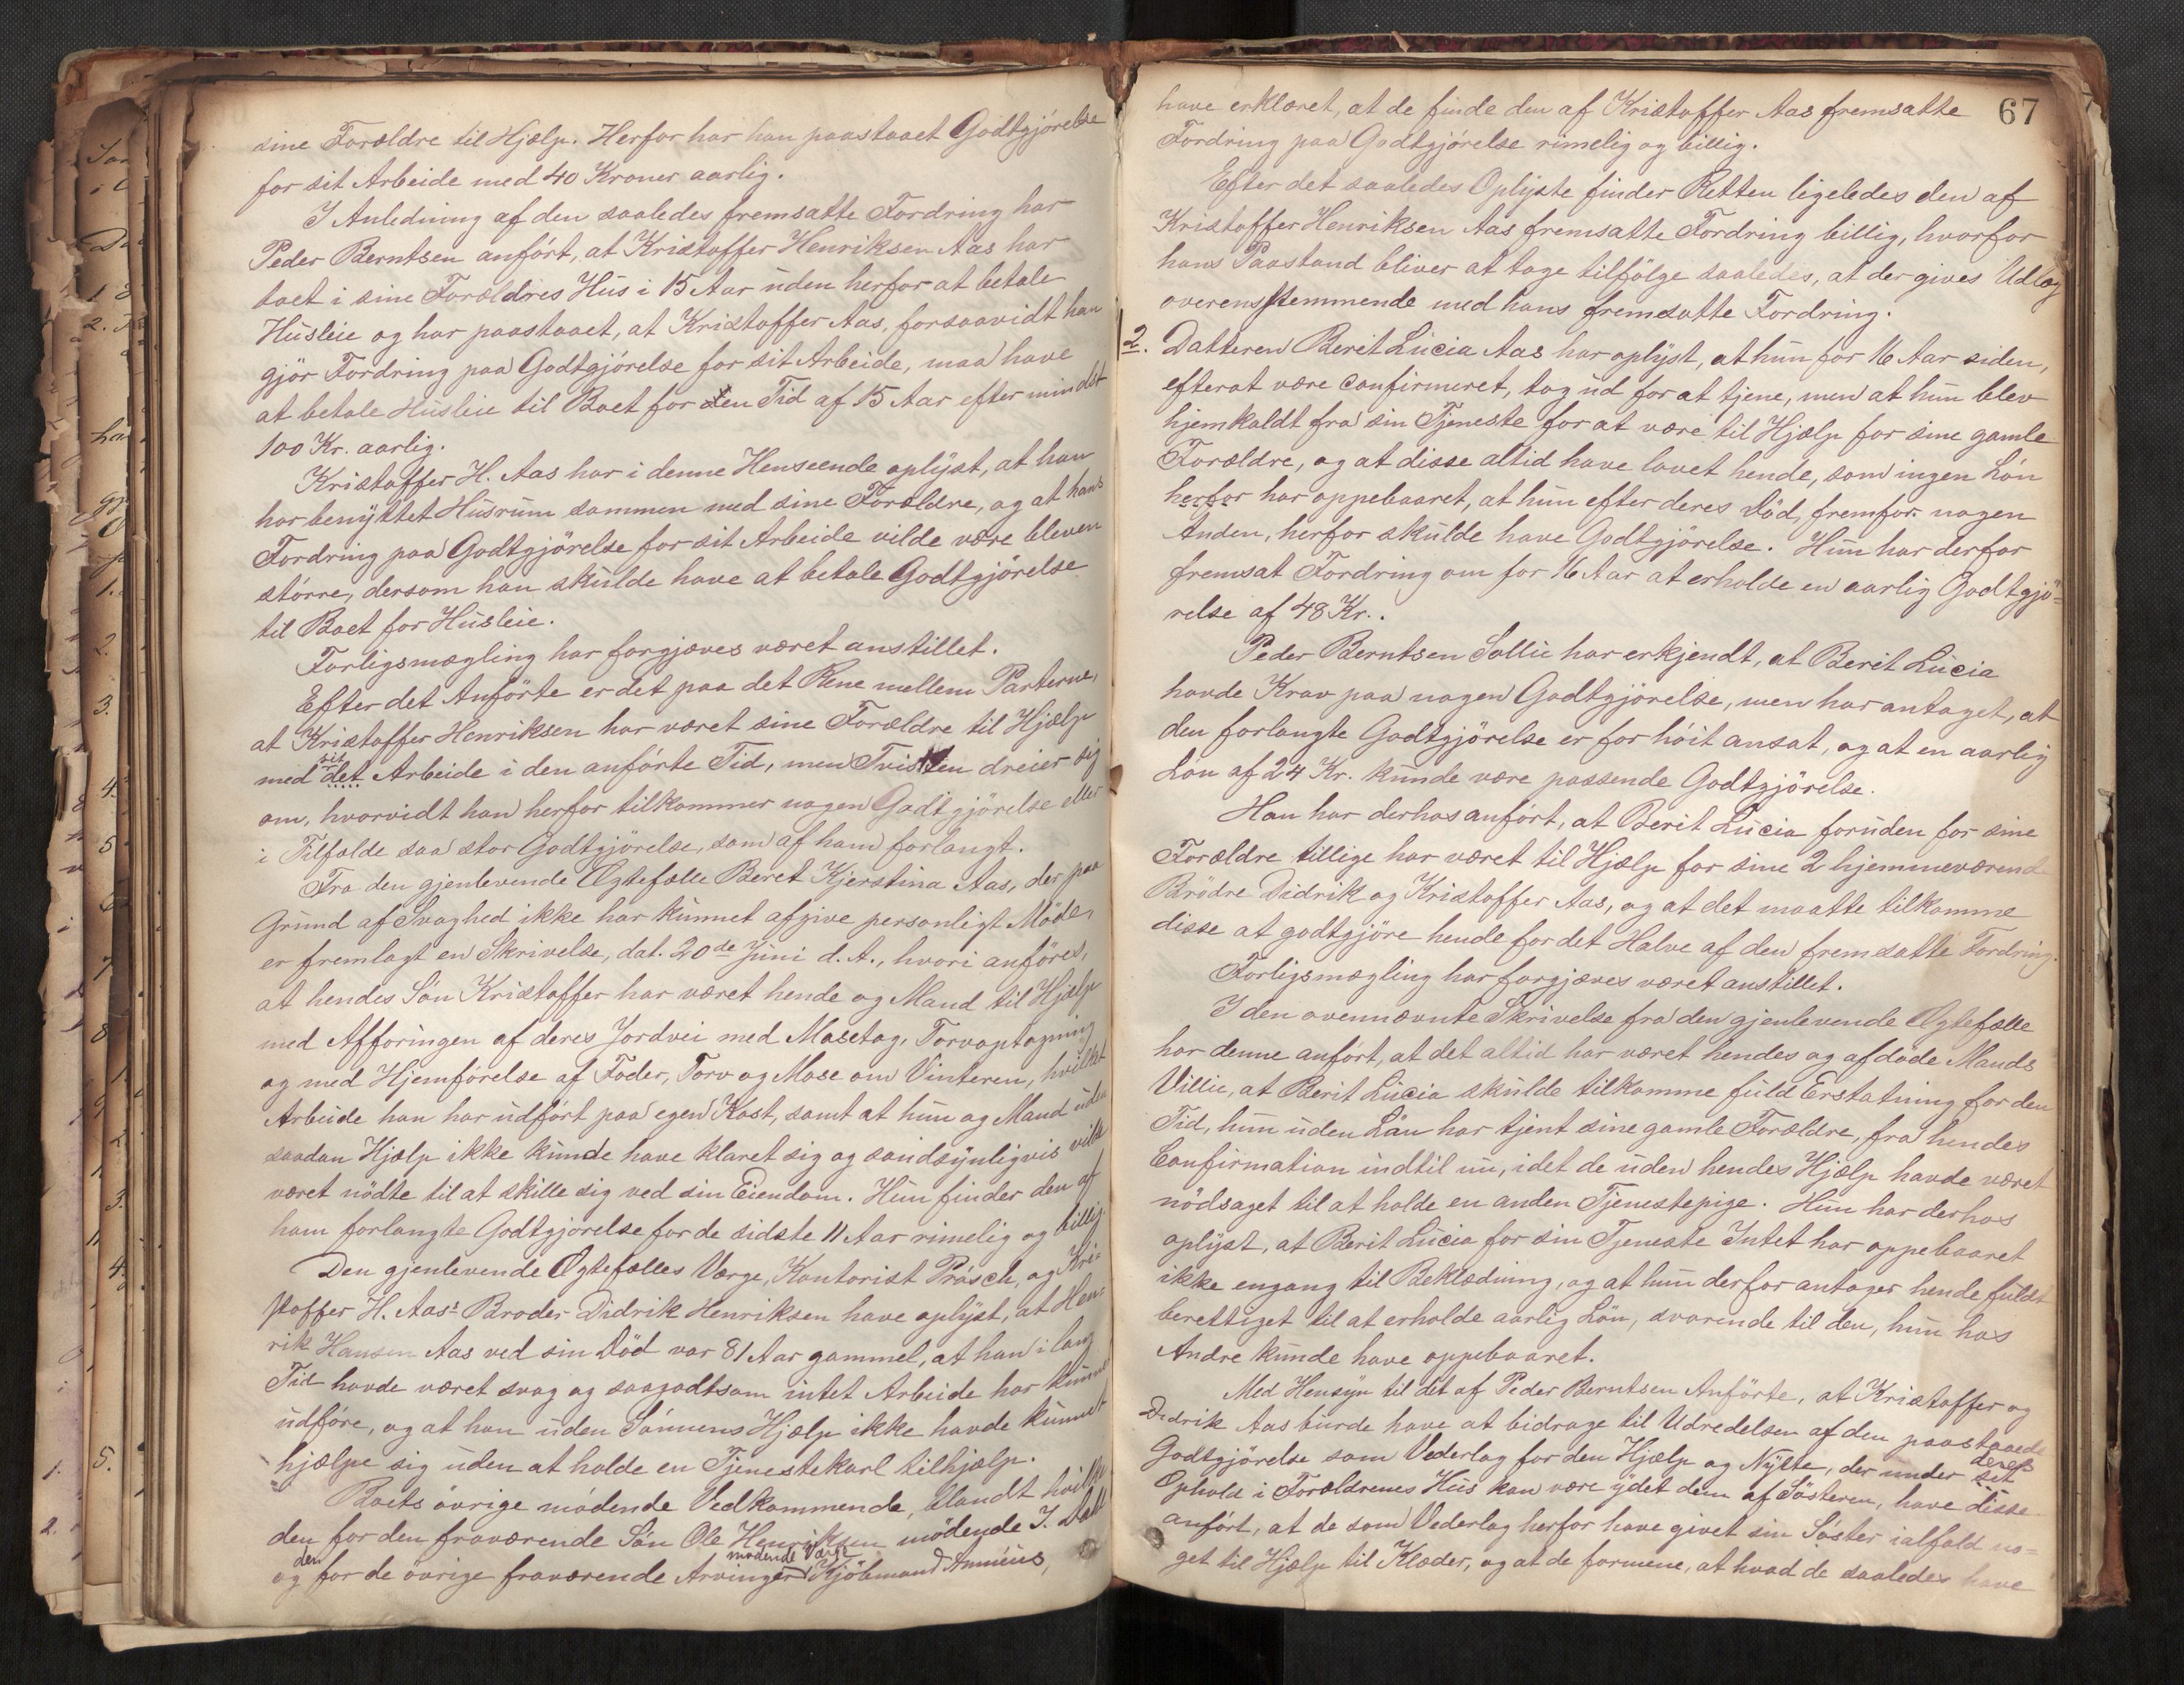 sine Forældre til Hjælp. Herfor har han paastaaet Godtgjörelse
for sit Arbeide med 40 Kroner aarlig.
I Anledning af den saaledes fremsatte Fordring har
Peder Berntsen anfört, at Kristoffer Henriksen Aas har
boet i sine Forældres Hus i 15 Aar uden herfor at betale
Husleie og har paastaaet, at Kristoffer Aas, forsaavidt han
gjör Fordring paa Godtgjörelse for sit Arbeide, maa have
at betale Husleie til Boet for den Tid af 15 Aar efter mindst
100 Kr. aarlig.
Kristoffer H. Aas har i denne Henseende oplyst, at han
har benyttet Husrum sammen med sine Forældre, og at hans
Fordring paa Godtgjörelse for sit Arbeide vilde være bleven
större, dersom han skulde have at betale Godtgjörelse
til Boet for Husleie.
Forligsmægling har forgjæves været anstillet.
Efter det Anförte er det paa det Rene mellem Parterne,
at Kristoffer Henriksen har været sine Forældre til Hjælp
med det sit Arbeide i den anförte Tid, men Tvisten dreier sig
om, hvorvidt han herfor tilkommer nogen Godtgjörelse eller
i Tilfælde saa stor Godtgjörelse, som af ham forlangt.
Fra den gjenlevende Ægtefælle Beret Kjerstina Aas, der paa
Grund af Svaghed ikke har kunnet afgive personligt Möde,
er fremlagt en Skrivelse, dat. 20de Juni d. A., hvori anföres,
at hendes Sön Kristoffer har været hende og Mand til Hjælp
med Afforingen af deres Jordvei med Mosetag, Torvoptagning
og med Hjemförelse af Foder, Torv og Mose om Vinteren, hvilket
Arbeide han har udfört paa egen Kost, samt at hun og Mand uden
saadan Hjælp ikke kunde have klaret sig og sandsynligvis vilde
været nödte til at skille sig ved sin Eiendom. Hun finder den af
ham forlangte Godtgjörelse for de sidste 11 Aar rimelig og billig.
Den gjenlevende Ægtefælles Værge, Kontorist Prösch, og Kri-
stoffer H. Aas's Broder Didrik Henriksen have oplyst, at Hen-
rik Hansen Aas ved sin Död var 81 Aar gammel, at han i lang
Tid havde været svag og saagodtsom intet Arbeide har kunnet
udföre, og at han uden Sönnens Hjælp ikke havde kunnet
hjælpe sig uden at holde en Tjenestekarl tilhjælp.
Boets övrige mödende Vedkommende, blandt hvilke
den for den fraværende Sön Ole Henriksen mödende I. Dahl
og den for de övrige fraværende Arvinger mödende Værge Kjöbmand Annæus,
67
have erklæret, at de finde den af Kristoffer Aas fremsatte
Fordring paa Godtgjörelse rimelig og billig.
Efter det saaledes Oplyste finder Retten ligeledes den af
Kristoffer Henriksen Aas fremsatte Fordring billig, hvorfor
hans Paastand bliver at tage tilfölge saaledes, at der gives Udlæg
overensstemmende med hans fremsatte Fordring.
2. Datteren Berit Lucia Aas har oplyst, at hun for 16 Aar siden,
efterat være confirmeret, tog ud for at tjene, men at hun blev
hjemkaldt fra sin Tjeneste for at være til Hjælp for sine gamle
Forældre, og at disse altid have lovet hende, som ingen Lön
herfor har oppebaaret, at hun efter deres Död, fremfor nogen
Anden, herfor skulde have Godtgjörelse. Hun har derfor
fremsat Fordring om for 16 Aar at erholde en aarlig Godtgjö-
relse af 48 Kr..
Peder Berntsen Sollie har erkjendt, at Berit Lucia
havde Krav paa nogen Godtgjörelse, men har antaget, at
den forlangte Godtgjörelse er for höit ansat, og at en aarlig
Lön af 24 Kr. kunde være passende Godtgjörelse.
Han har derhos anfört, at Berit Lucia foruden for sine
Forældre tillige har været til Hjælp for sine 2 hjemmeværende
Brödre Didrik og Kristoffer Aas, og at det maatte tilkomme
disse at godtgjöre hende for det Halve af den fremsatte Fordring.
Forligsmægling har forgjæves været anstillet.
I den ovennævnte Skrivelse fra den gjenlevende Ægtefælle
har denne anfört, at det altid har været hendes og afdöde Mands
Villie, at Berit Lucia skulde tilkomme fuld Erstatning for den
Tid, hun uden Lön har tjent sine gamle Forældre, fra hendes
Confirmation indtil nu, idet de uden hendes Hjælp havde været
nödsaget til at holde en anden Tjenestepige. Hun har derhos
oplyst, at Berit Lucia for sin Tjeneste Intet har oppebaaret
ikke engang til Beklædning, og at hun derfor antager hende fuldt
berettiget til at erholde aarlig Lön, svarende til den, hun hos
Andre kunde have oppebaaret.
Med Hensyn til det af Peder Berntsen Anförte, at Kristoffer og
Didrik Aas burde have at bidrage til Udredelsen af den paastaaede
Godtgjörelse som Vederlag for den Hjælp og Nytte, der under sit deres
Ophold i Forældrenes Hus kan være ydet dem af Sösteren, have disse
anfört, at de som Vederlag herfor have givet sin Söster ialfald no-
get til Hjælp til Klæder, og at de formene, at hvad de saaledes have